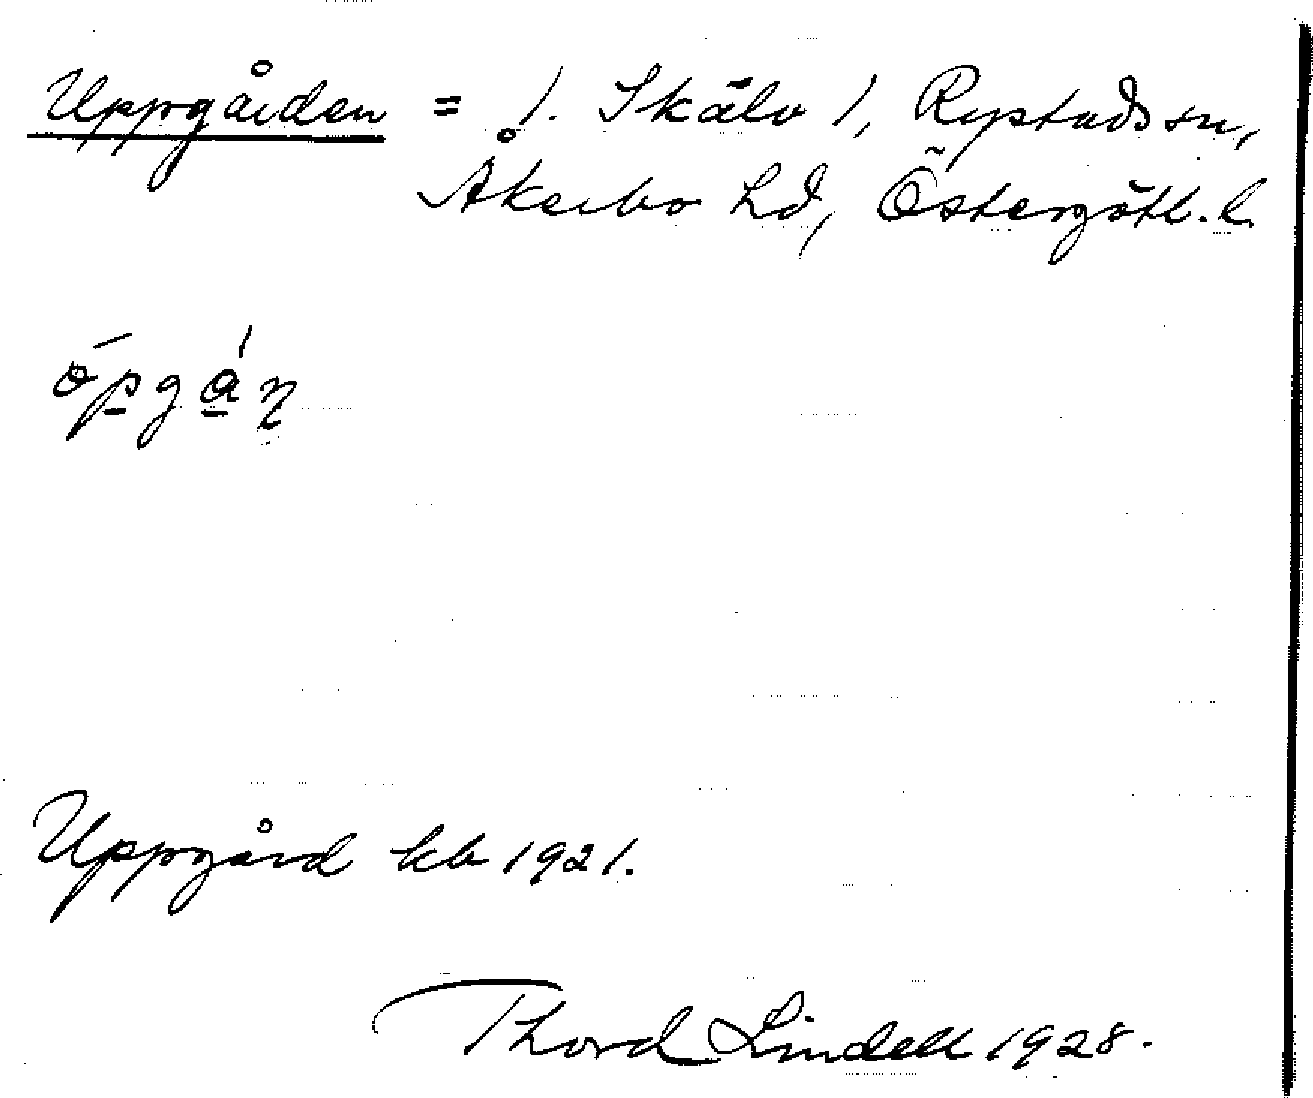 Uppgården = 1. Skälv 1, Rystads sn,
Åkerbo hd, Östergötl. l.
ópgṇ
Uppgård kb 1921.
Thord Lindell 1928.